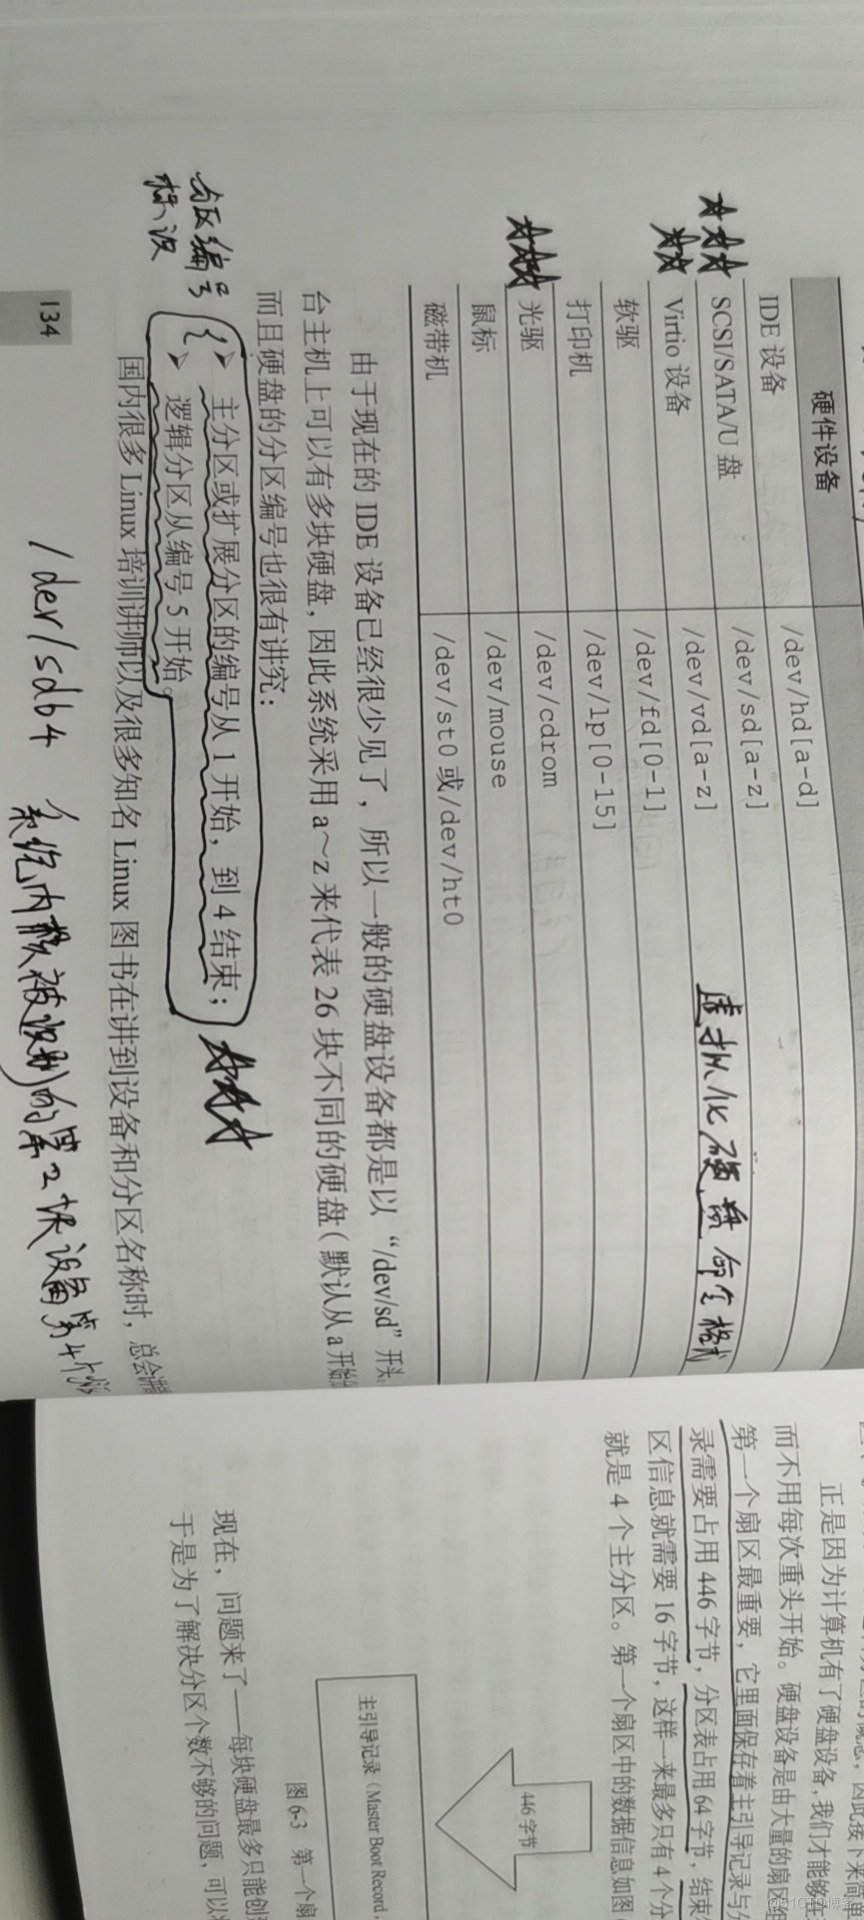 硬件设备
IDE 设备 /dev/hd[a-d]
SCSI/SATA/U 盘 /dev/sd[a-z]
Virtio 设备 /dev/vd[a-z] 虚拟化硬盘命名格式
软驱 /dev/fd[0-1]
打印机 /dev/lp[0-15]
光驱 /dev/cdrom
鼠标 /dev/mouse
磁带机 /dev/st0 或/dev/ht0
由于现在的 IDE 设备已经很少见了，所以一般的硬盘设备都是以“/dev/sd”开头
台主机上可以有多块硬盘，因此系统采用 a～z 来代表 26 块不同的硬盘（默认从 a 开始
而且硬盘的分区编号也很有讲究：
分区编号
标识
➢ 主分区或扩展分区的编号从 1 开始，到 4 结束；
➢ 逻辑分区从编号 5 开始。
国内很多 Linux 培训讲师以及很多知名 Linux 图书在讲到设备和分区名称时，总会讲
/dev/sdb4 系统内核被识别的第2块设备第4个
134
正是因为计算机有了硬盘设备，我们才能够在
而不用每次重头开始。硬盘设备是由大量的扇区组
第一个扇区最重要，它里面保存着主引导记录与
录需要占用 446 字节，分区表占用 64 字节，结束
区信息就需要 16 字节，这样一来最多只有 4 个分
就是 4 个主分区。第一个扇区中的数据信息如图
446 字节
主引导记录（Master Boot Record，
图 6-3 第一个扇
现在，问题来了——每块硬盘最多只能创
于是为了解决分区个数不够的问题，可以
@51CTO博客